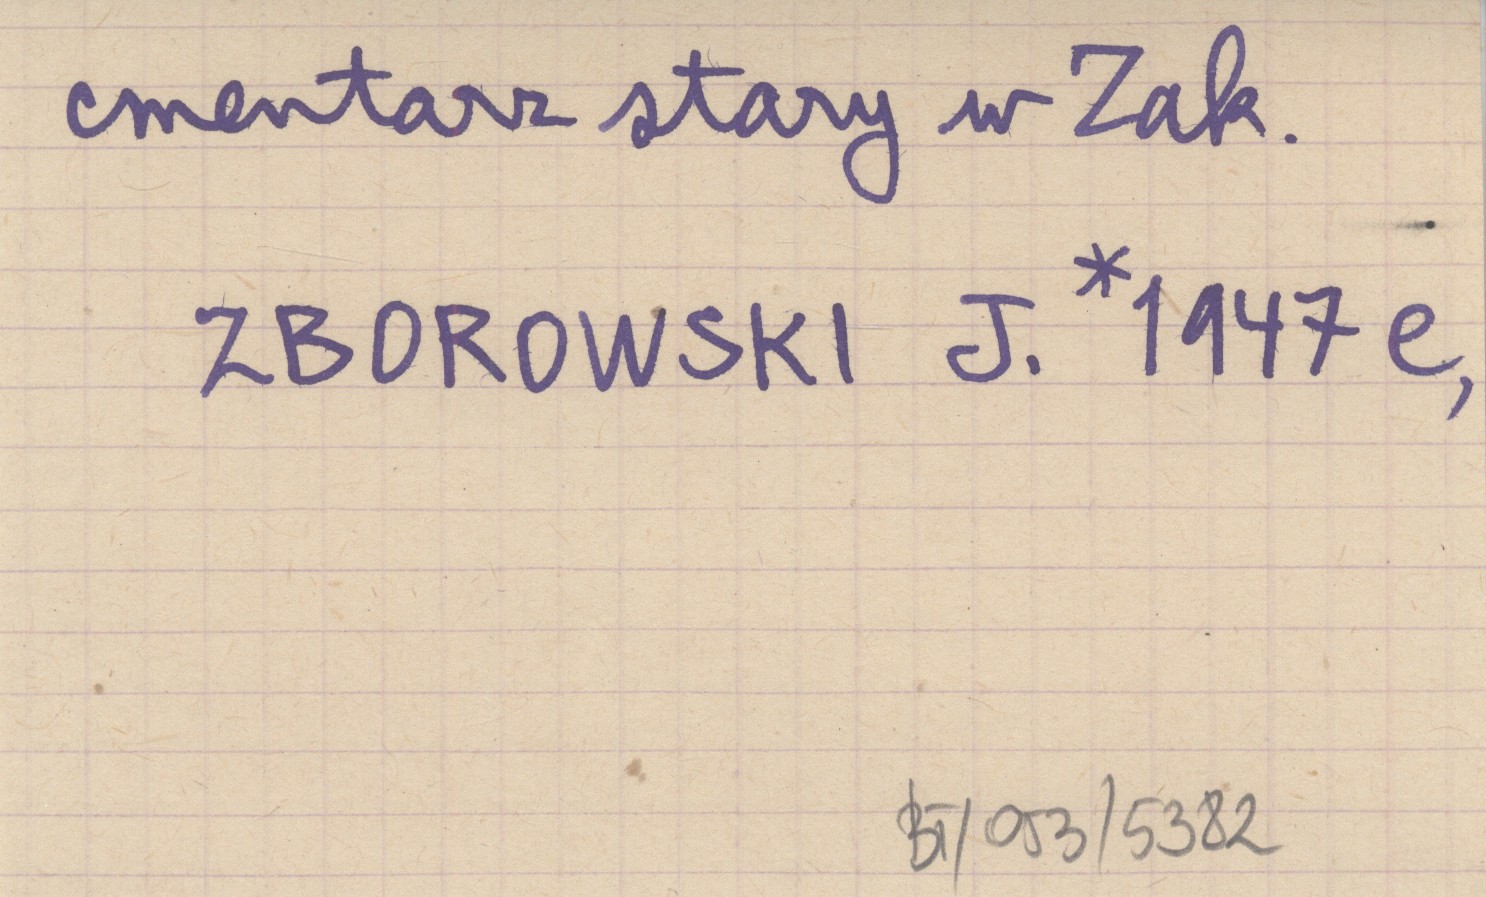 cmentarz stary w Zak.
ZBOROWSKI J. *1947 e,
BT/053/5382